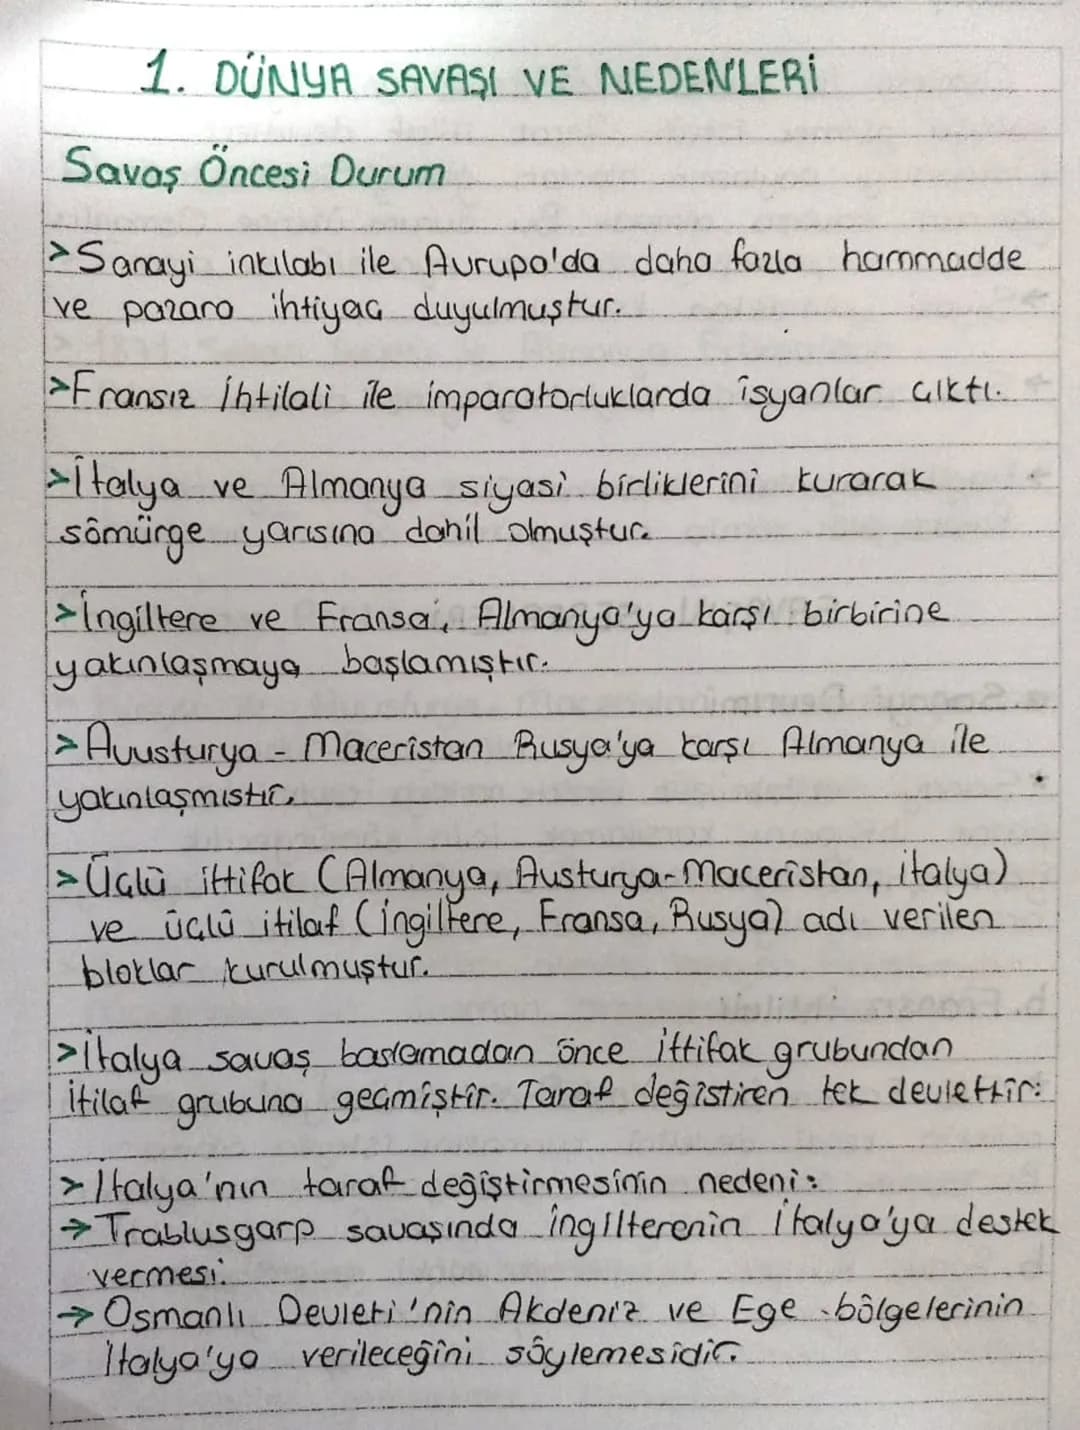 1. DÜNYA SAVAŞI VE NEDENLERİ
Savaş Öncesi Durum
>Sanayi inkılabı ile Avrupa'da daha fazla hammadde
ve pazara ihtiyaç duyulmuştur.
>Fransız İhtilali ile imparatorluklarda isyanlar çıktı.
>İtalya ve Almanya siyasi birliklerini kurarak
sömürge yarısına dahil olmuştur.
>İngiltere ve Fransa, Almanya'ya karşı birbirine
yakınlaşmaya başlamıştır.
>Avusturya - Maceristan Rusya'ya karşı Almanya ile
yakınlaşmıstır.
>Üçlü ittifak (Almanya, Austurya-Maceristan, italya)
ve üçlü itilaf (İngiltere, Fransa, Rusya) adı verilen
bloklar kurulmuştur.
>İtalya savaş baslamadan önce ittifak grubundan
İtilaf grubuna geçmiştir. Taraf değistiren tek devlettir.
>Italya'nın taraf değiştirmesinin nedeni:
→Trablusgarp savaşında ingilterenin italya'ya destek
vermesi.
→Osmanlı Devleti'nin Akdeniz ve Ege bölgelerinin
italya'ya verileceğini söylemesidir.